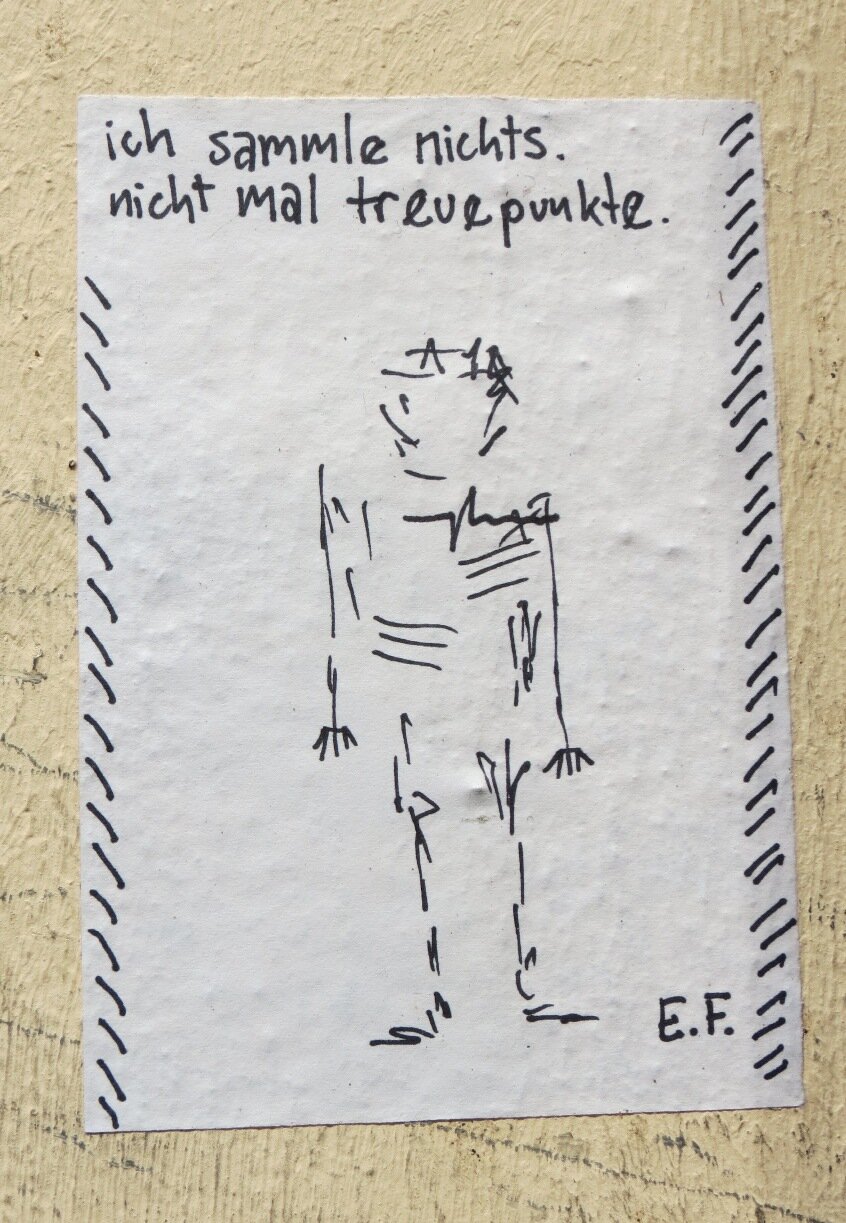 ich sammle nichts.
nicht mal treuepunkte.
E.F.